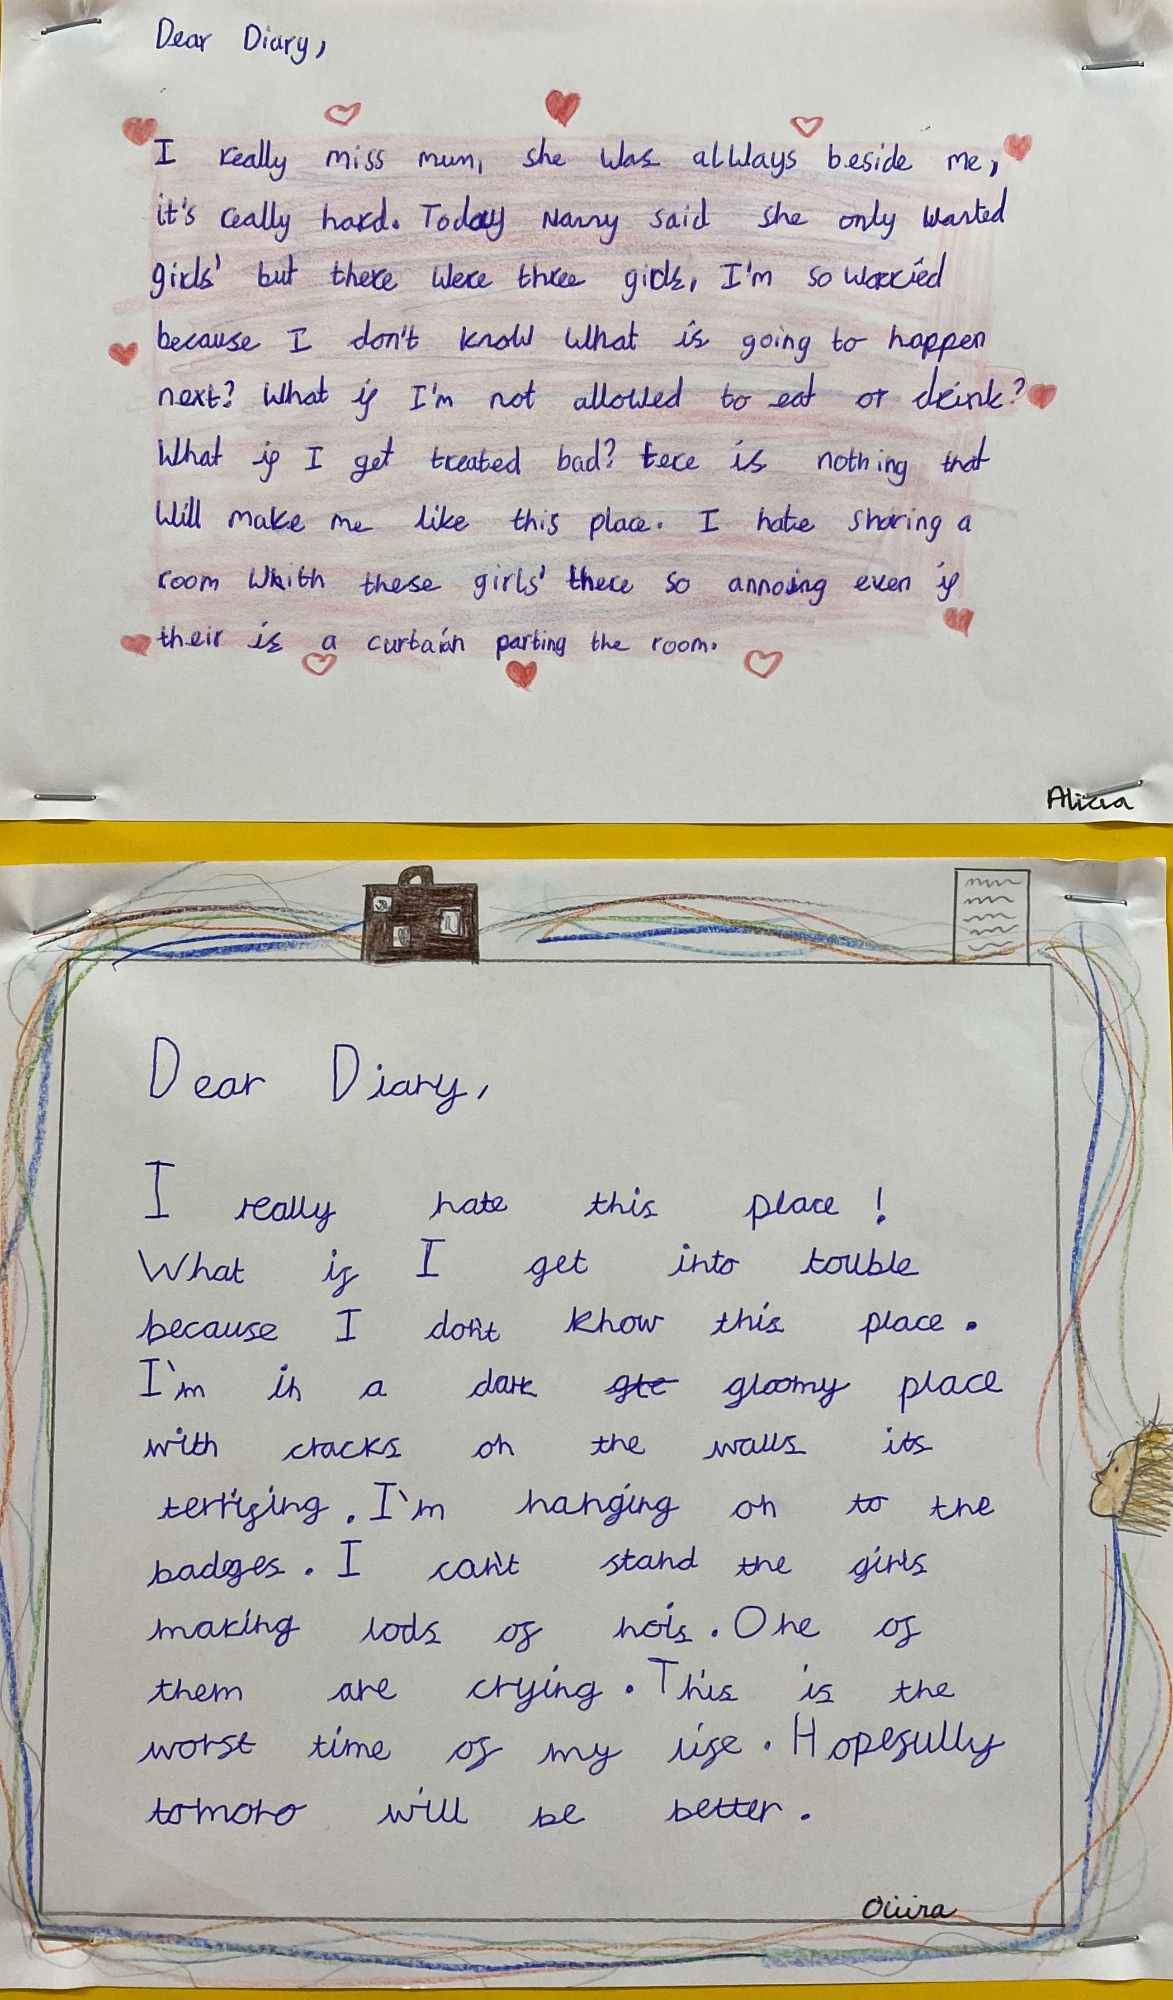 Dear Diary,
I really miss mum, she was allways beside me,
it's really hard. Today Nanny said she only wanted
girls' but there were three girls, I'm so worried
because I don't know what is going to happen
next? What if I'm not allowed to eat or drink?
What if I get treated bad? tere is nothing that
will make me like this place. I hate sharing a
room whith these girls' there so annoing even if
their is a curtain parting the room.
Alicia
Dear Diary,
I really hate this place!
What if I get into touble
because I don't know this place.
I'm in a dark gloomy place
with cracks on the walls its
terrifing. I'm hanging on to the
badges. I can't stand the girls
making lods of nois. One of
them are crying. This is the
worst time of my life. Hopefully
tomoro will be better.